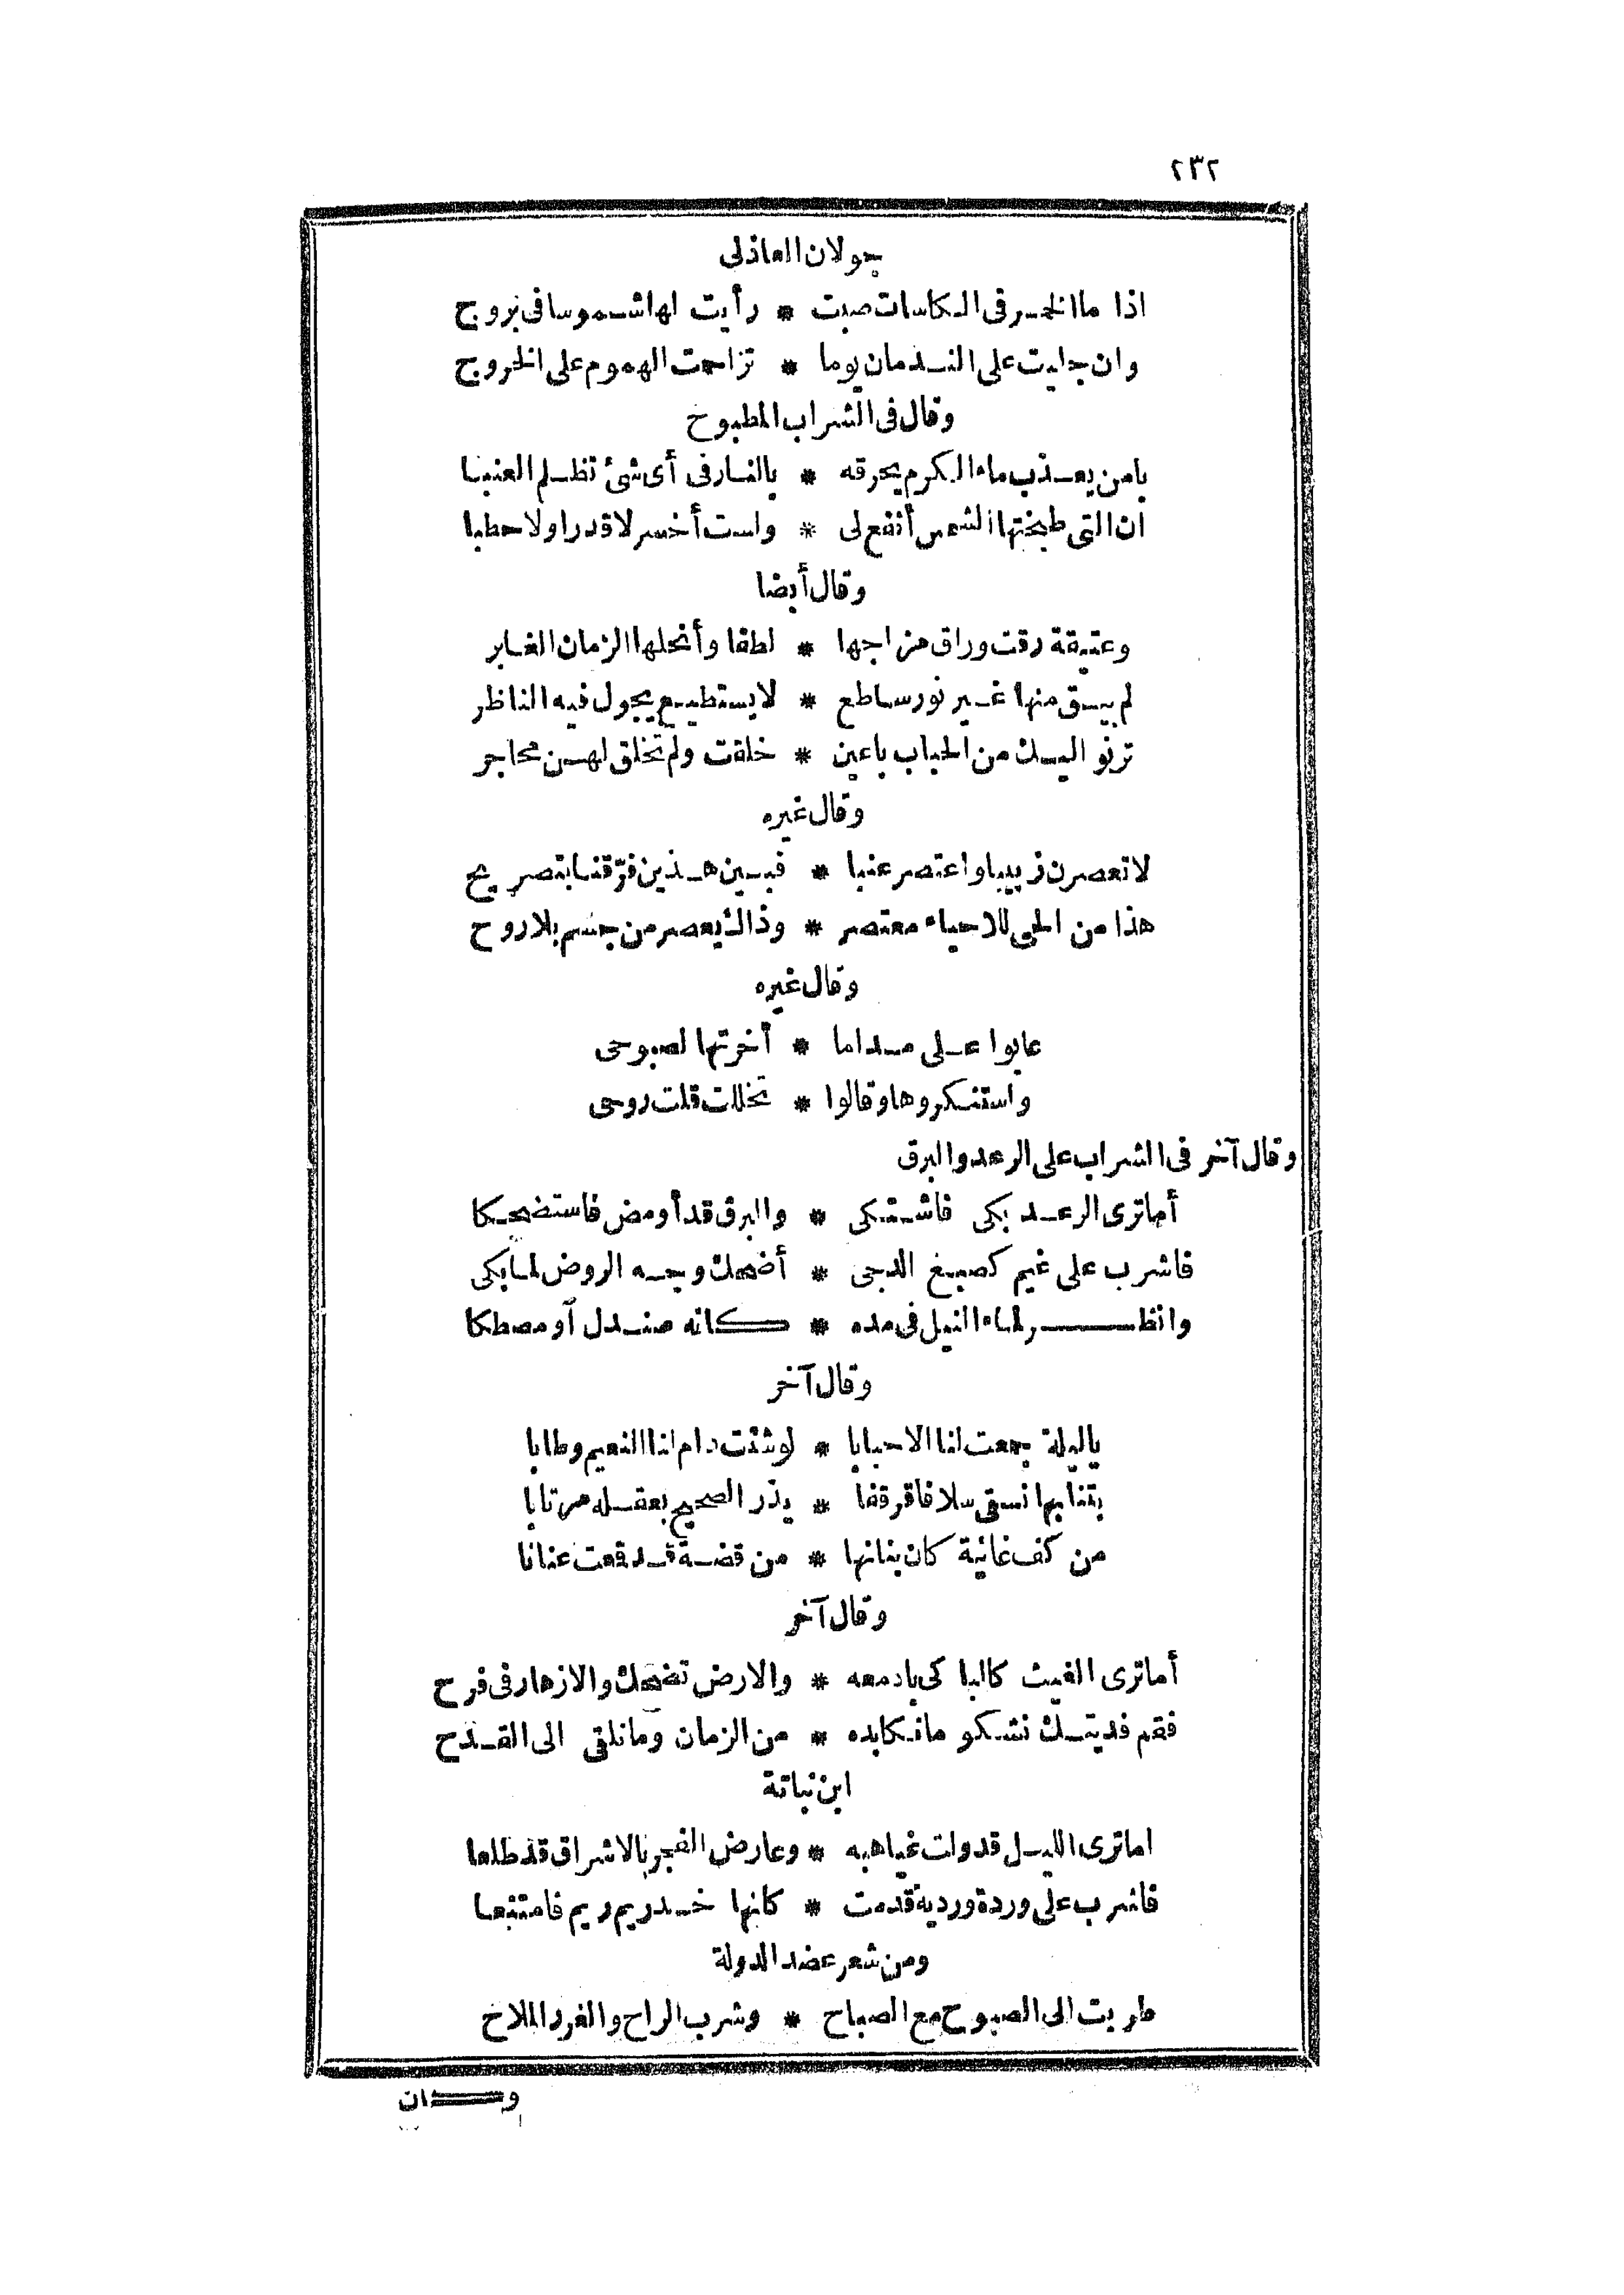 ٢٣٢
جولان العاذلى
اذا ما الخمر فى الكاسات صبت * رأيت لها شموسا فى بروج
وان جليت على الندمان يوما * تزاحمت الهموم على الخروج
وقال فى الشراب المطبوخ
يا من يعذب ماء الكرم يحرقه * بالنار فى أى شئ تظلم العنبا
ان التى طبختها الشمس أنفع لى * ولست أخسر لا قدرا ولا حطبا
وقال أيضا
وعتيقة رقت وراق مزاجها * لطفا وأنحلها الزمان الغابر
لم يبق منها غير نور ساطع * لا يستطيع يجول فيه الناظر
ترنو اليك من الحباب باعين * خلقت ولم تخلق لهن محاجر
وقال غيره
لا تعصرن زبيبا واعتصر عنبا * فبين هذين فرّقنا بتصريح
هذا من الحى للاحياء معتصر * وذاك يعصر من جسم بلا روح
وقال غيره
عابوا على مداما * أخرتها لصبوحى
واستنكروها وقالوا * تخللت قلت روحى
وقال آخر فى الشراب على الرعد والبرق
أما ترى الرعد بكى فاشتكى * والبرق قد أومض فاستضحكا
فاشرب على غيم كصبغ الدجى * أضحك وجه الروض لما بكى
وانظر لماء النيل فى مده * كانه صندل أو مصطكا
وقال آخر
يا ليلة جمعت لنا الاحبابا * لو شئت دام لنا النعيم وطابا
بتنا بها نسقى سلافا قرقفا * يذر الصحيح بعقله مرتابا
من كف غانية كان بنانها * من فضة قد قمعت عنابا
وقال آخر
أما ترى الغيث كالباكى بادمعه * والارض تضحك والازهار فى فرح
فقم فديتك نشكو ما نكابده * من الزمان وما نلقى الى القدح
ابن نباتة
اما ترى الليل قد ولت غياهبه * وعارض الفجر بالاشراق قد طلعا
فاشرب على وردة وردية قدمت * كانها خد ريم ريم فامتنعا
ومن شعر عضد الدولة
طربت الى الصبوح مع الصباح * وشرب الراح والغرر الملاح
وكان